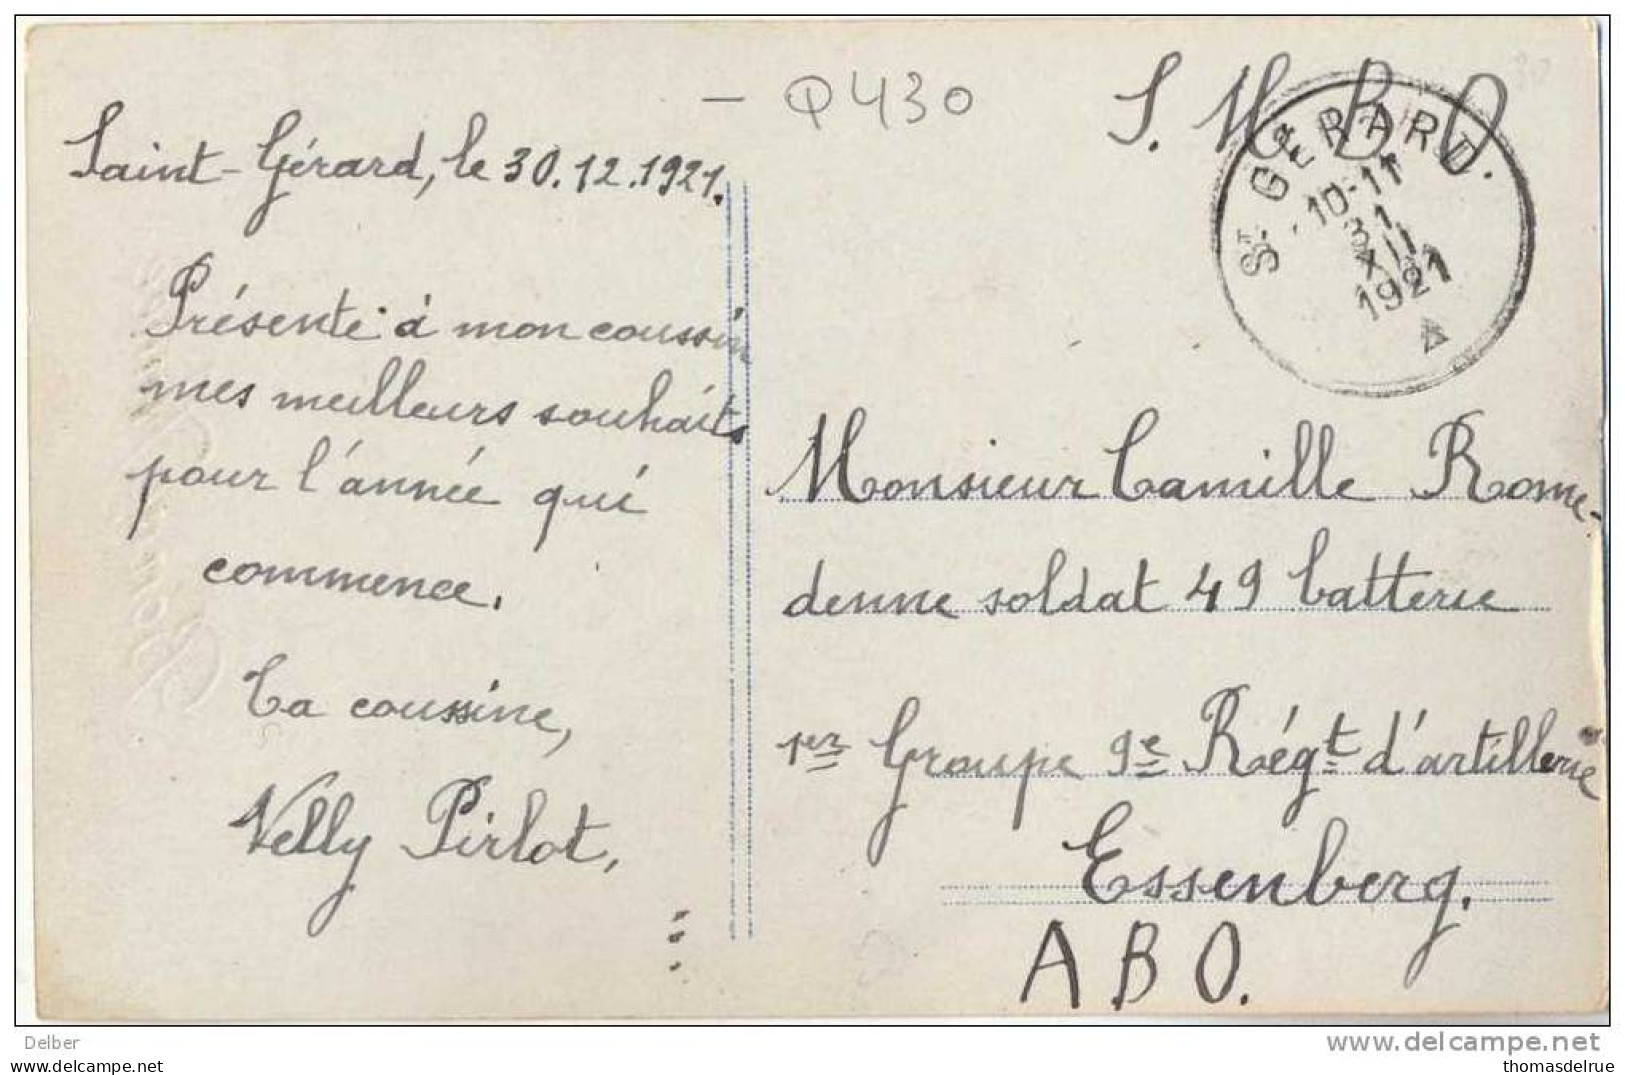 - Q430
S. M. B. O.
Saint-Gérard, le 30.12.1921.
ST GÉRARD.
10-11
31
XII
1921
Présente à mon coussin
mes meilleurs souhaits
pour l'année qui
commence.
Ta coussine,
Nelly Pirlot,
Monsieur Camille Rome-
denne soldat 49 batterie
1er Groupe 9e Régt d'artillerie
Essenberg.
A.B.O.
Delber
www.delcampe.net
thomasdelrue